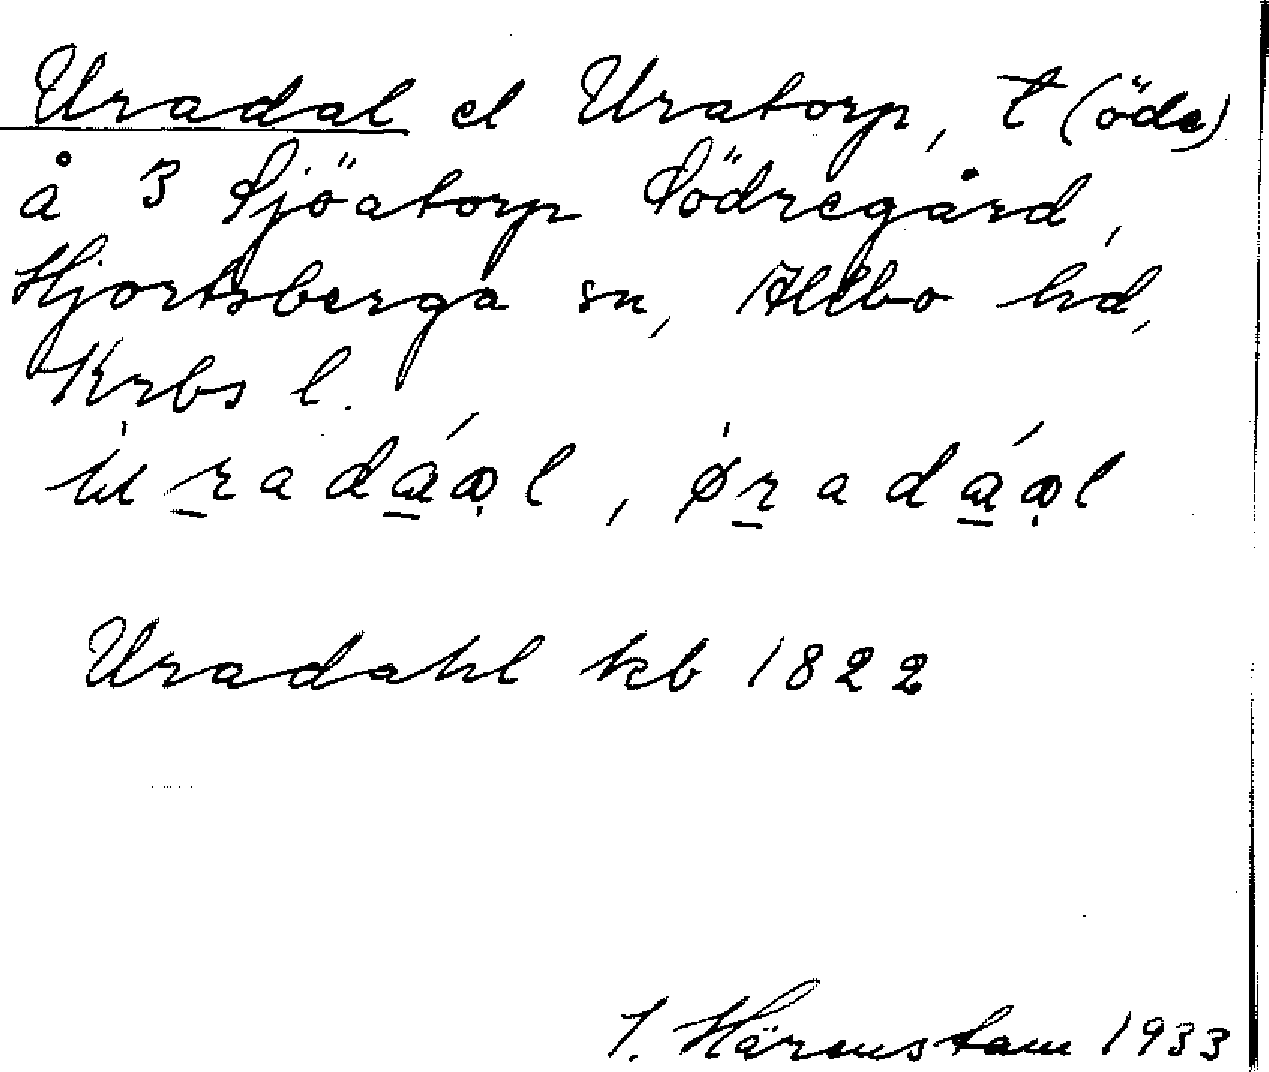 Uradal el Uratorp, t (öde)
å 3 Sjöatorp Södregård,
Hjortsberga sn, Allbo hd,
Krbs l.
Uradahl kb 1822
I. Härenstam 1933